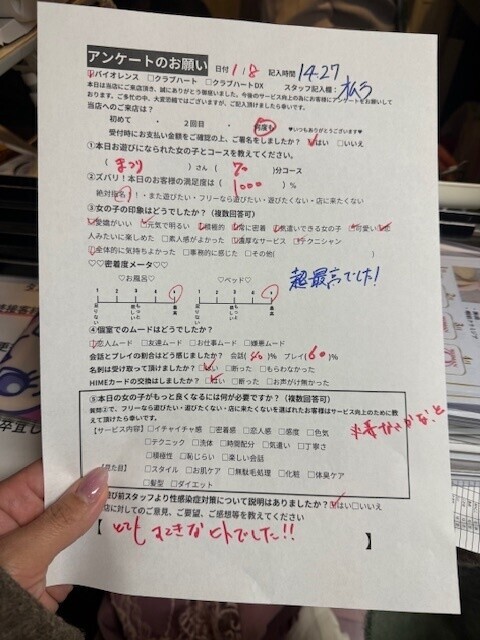 アンケートのお願い 日付 1/8 記入時間 14:27
バイオレンス □クラブハート □クラブハートDX スタッフ記入欄:
本日は当店にご来店頂き、誠にありがとう御座いました。今後のサービス向上の為にお客様にアンケートをお願いして
おります。ご多忙の中、大変恐縮ではございますが、ご記入頂けましたら幸いです。
当店へのご来店は?
初めて ・ 2回目 ・ 何度も ♥いつもありがとうございます♥
受付時にお支払い金額をご確認の上、ご署名をしましたか? はい □いいえ
①本日お遊びになられた女の子とコースを教えてください。
( まつり )さん ( 70 )分コース
②ズバリ!本日のお客様の満足度は( 1000 )%
絶対指名!・また遊びたい・フリーなら遊びたい・遊びたくない・店に来たくない
③女の子の印象はどうでしたか?(複数回答可)
愛嬌がいい 元気で明るい 積極的 常に密着 気遣いできる女の子 可愛い 恋
人みたいに楽しめた □素人感がよかった 濃厚なサービス テクニシャン
全体的に気持ちよかった □事務的に感じた □その他( )
♡♡密着度メータ♡♡ 超最高でした!
♡お風呂♡ ♡ベッド♡
1 2 3 4 1 2 3 4
足りない もっと欲しい 最高 足りない もっと欲しい 最高
④個室でのムードはどうでしたか?
恋人ムード □友達ムード □お仕事ムード □嫌悪ムード
会話とプレイの割合はどう感じましたか? 会話( 40 )% プレイ( 60 )%
名刺は受け取って頂けましたか? はい □断った □もらわなかった
HIMEカードの交換はしましたか? はい □断った □お声がけ無かった
⑤本日の女の子がもっと良くなるには何が必要ですか?(複数回答可)
質問②で、フリーなら遊びたい・遊びたくない・店に来たくないを選ばれたお客様はサービス向上のために教
えて頂けたら幸いです。
【サービス内容】□イチャイチャ感 □密着感 □恋人感 □色気
□テクニック □洗体 □時間配分 □気遣い □丁寧さ
□積極性 □恥じらい □楽しい会話
【見た目】 □スタイル □お肌ケア □無駄毛処理 □化粧 □体臭ケア
□髪型 □ダイエット
び前スタッフより性感染症対策について説明はありましたか? はい □いいえ
店に対してのご意見、ご要望、ご感想等を教えてください
【 とても すてきなヒトでした!! 】